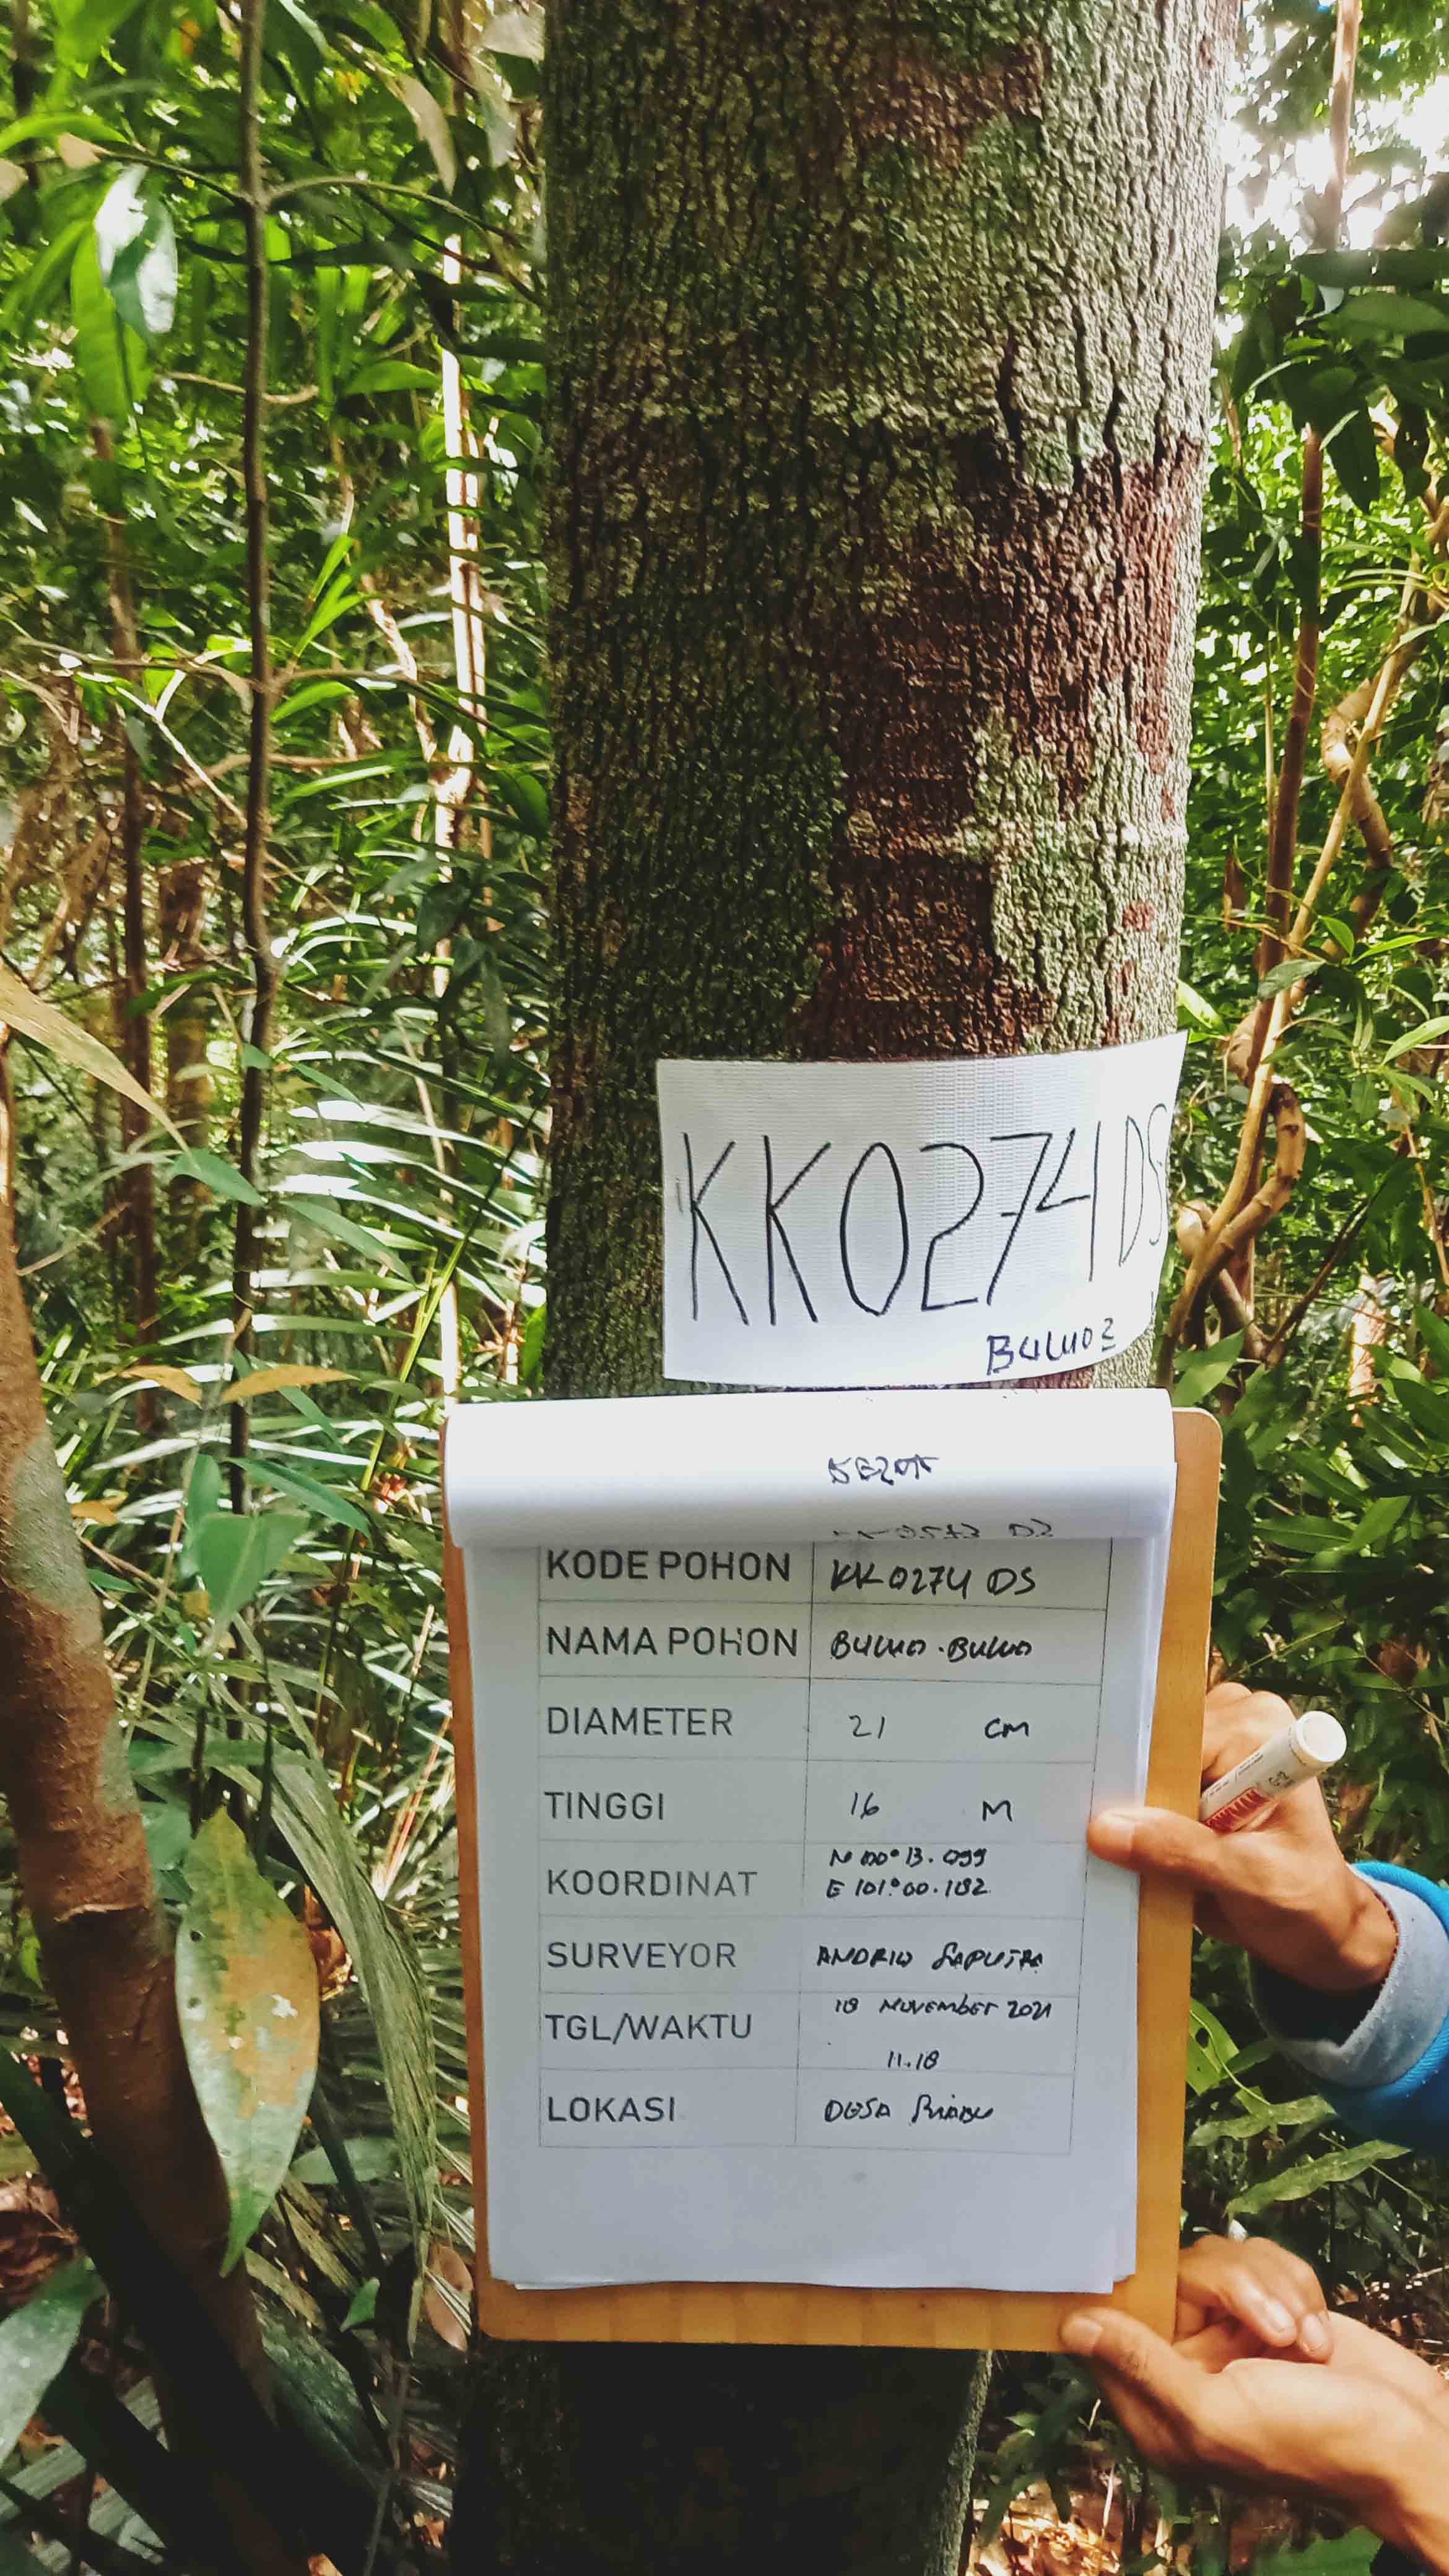 KK0274 DS
KODE POHON KK0274 DS
NAMA POHON
DIAMETER 21 CM
TINGGI 16 M
KOORDINAT N 00° 13.099
E 101° 00.182
SURVEYOR ANDRIO SAPUTRA
TGL/WAKTU 18 NOVEMBER 2021
11.18
LOKASI DESA